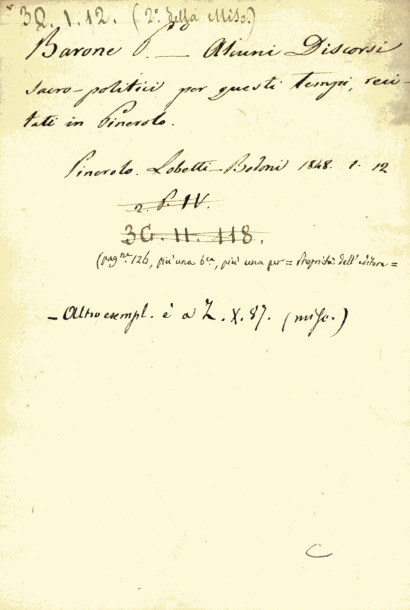 3Q. 1. 12. (2º. della Misc.)
Barone P. — Alcuni Discorsi
sacro-politici per questi tempi, reci-
tati in Pinerolo.
Pinerolo. Lobetti-Bodoni 1848. 1. 12
2. P. IV.
3G. 11. 118.
(pagne 126, più una bca, più una per = Proprietà dell'editore =
— Altro esempl. è a Z. X. 87. (misc.)
C